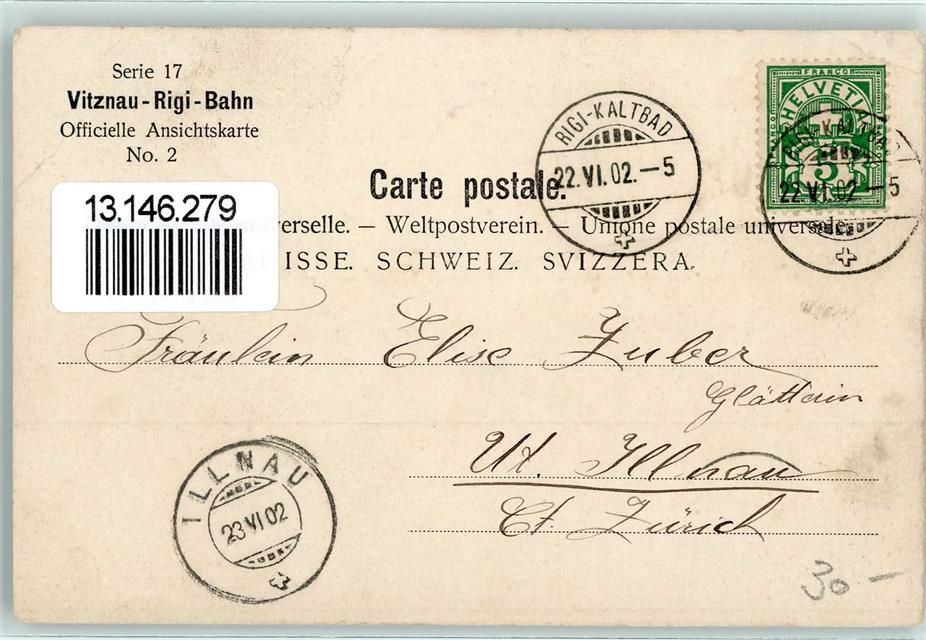 Serie 17
Vitznau-Rigi-Bahn
Officielle Ansichtskarte
No. 2
13.146.279
Carte postale.
verselle. — Weltpostverein. — Unione postale universale.
ISSE. SCHWEIZ. SVIZZERA.
RIGI-KALTBAD
22.VI.02.-5
FRANCO
HELVETIA
5
RIGI-KALTBAD
22.VI.02-5
Fräulein Elise Zuber
Glätterin
Ut. Illnau
Ct. Zürich
ILLNAU
23 VI 02
30 -